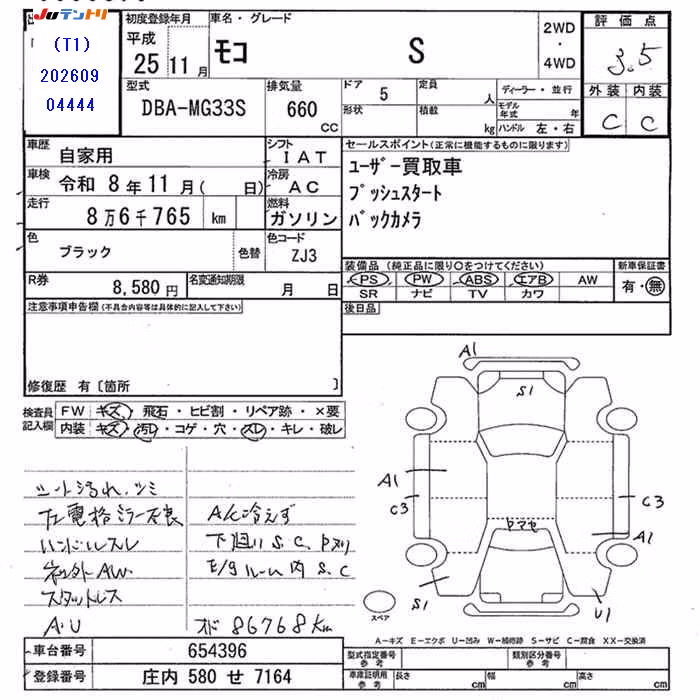 Juテントリ
(T1)
202609
04444
初度登録年月
平成
25 11 月
車名・グレード
モコ S
2WD
・
4WD
評価点
3.5
外装 内装
C C
型式
DBA-MG33S
排気量
660
CC
ドア 5
形状
定員 人
積載 kg
ディーラー・並行
モデル年式 年
ハンドル 左・右
車歴 自家用
車検 令和 8 年 11 月 ( 日)
走行 8 万 6 千 765 km
色 ブラック 色替
シフト IAT
冷房 AC
燃料 ガソリン
色コード ZJ3
セールスポイント(正常に機能するものに限ります)
ユーザー買取車
プッシュスタート
バックカメラ
R券 8,580 円
名変通知期限 月 日
装備品 (純正品に限り○をつけてください)
PS PW ABS エアB AW
SR ナビ TV カワ
新車保証書
有・無
後日品
注意事項申告欄(不具合内容等は具体的に記入して下さい)
修復歴 有〔箇所 〕
検査員記入欄
FW キズ・飛石・ヒビ割・リペア跡・×要
内装 キズ・汚レ・コゲ・穴・スレ・キレ・破レ
シート汚れ、シミ
左電格ミラー不良
ハンドルスレ
社外AW
スタットレス
A・U
A/C冷えず
下廻りS、C、Pヌリ
E/gルーム内S、C
オド 86768km
A1
S1
A1
C3
C3
A1
ヤマセ
S1
U1
スペア
A－キズ E－エクボ U－凹み W－補修跡 S－サビ C－腐食 XX－交換済
車台番号 654396
登録番号 庄内 580 せ 7164
型式指定番号 参考
類別区分番号 参考
車庫証明用 参考
長さ cm 幅 cm 高さ cm